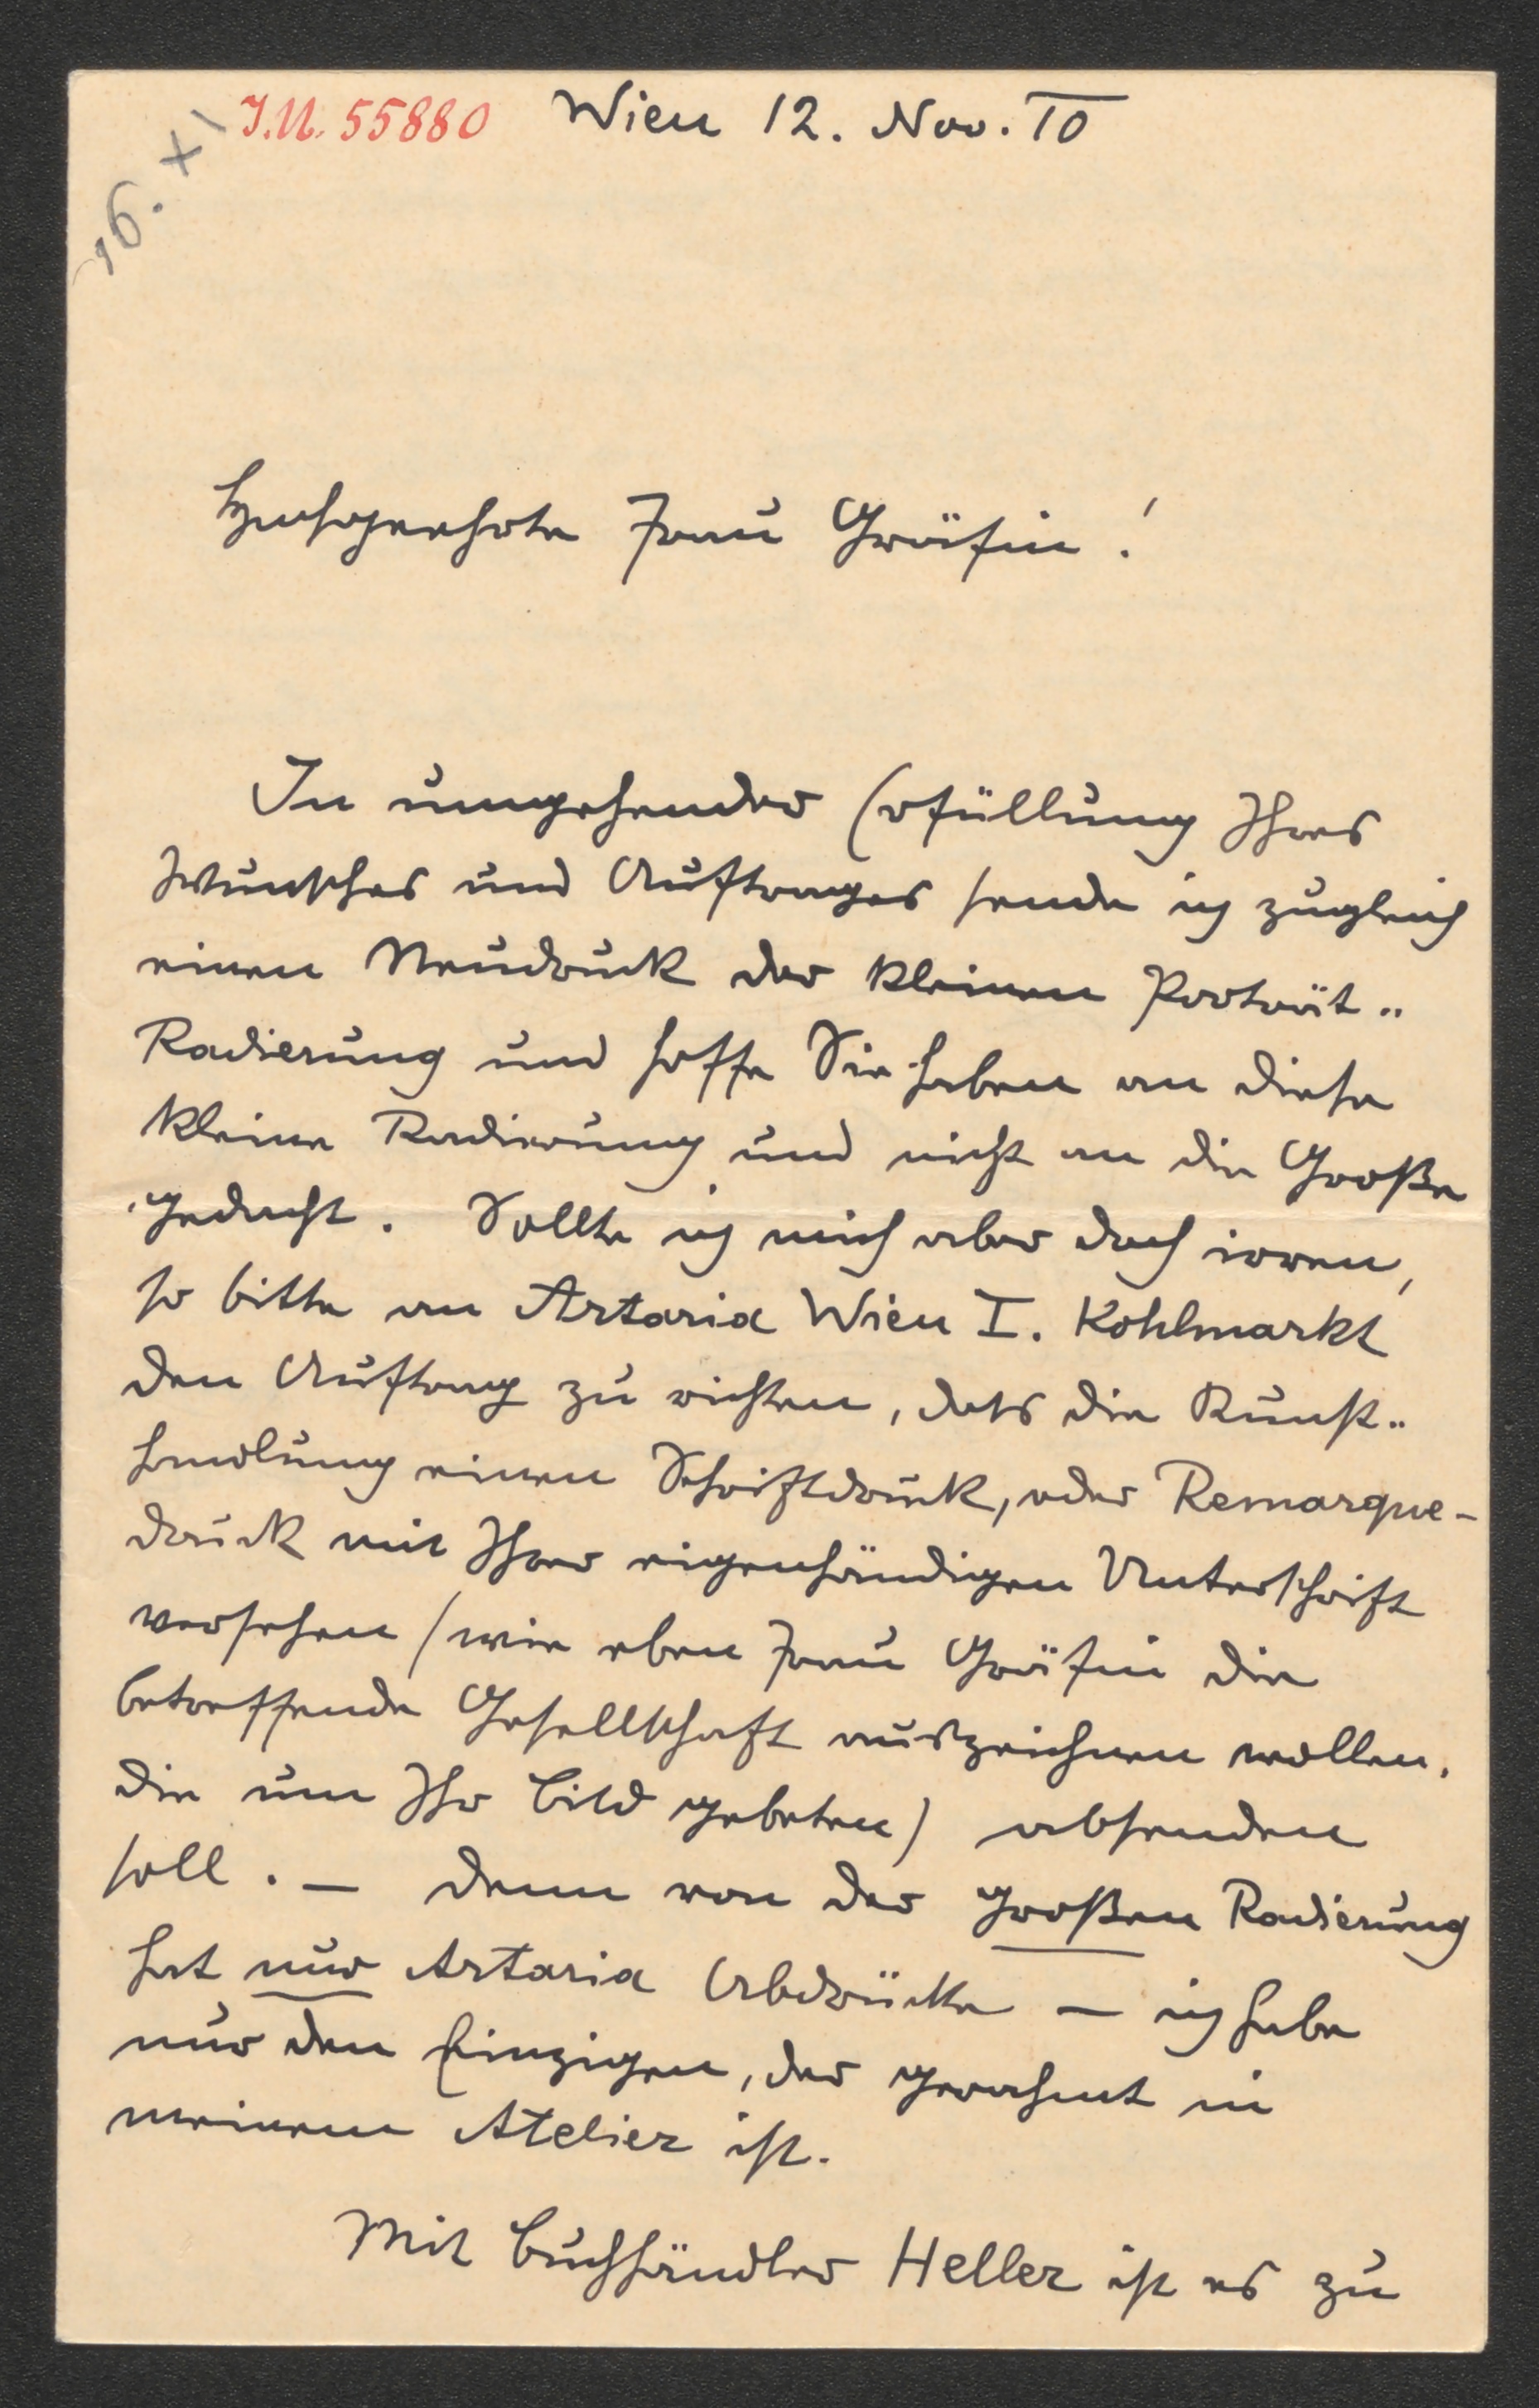 I.N. 55880 Wien 12. Nov. 10
16. XI
Hochgeehrte Frau Gräfin!
In umgehender Erfüllung Ihres
Wunsches und Auftrages sende ich zugleich
einen Neudruck der kleinen Porträt-
Radierung und hoffe Sie haben an diese
kleine Radierung und nicht an die Große
gedacht. Sollte ich mich aber doch irren,
so bitte an Artaria Wien I. Kohlmarkt
den Auftrag zu richten, dass die Kunst-
handlung einen Schriftdruck, oder Remarque-
druck mit Ihrer eigenhändigen Unterschrift
versehen (wie eben Frau Gräfin die
betreffende Gesellschaft auszeichnen wollen,
die um Ihr Bild gebeten) absenden
soll. — denn von der großen Radierung
hat nur Artaria Abdrücke — ich habe
nur den Einzigen, der gerahmt in
meinem Atelier ist.
Mit Buchhändler Heller ist es zu